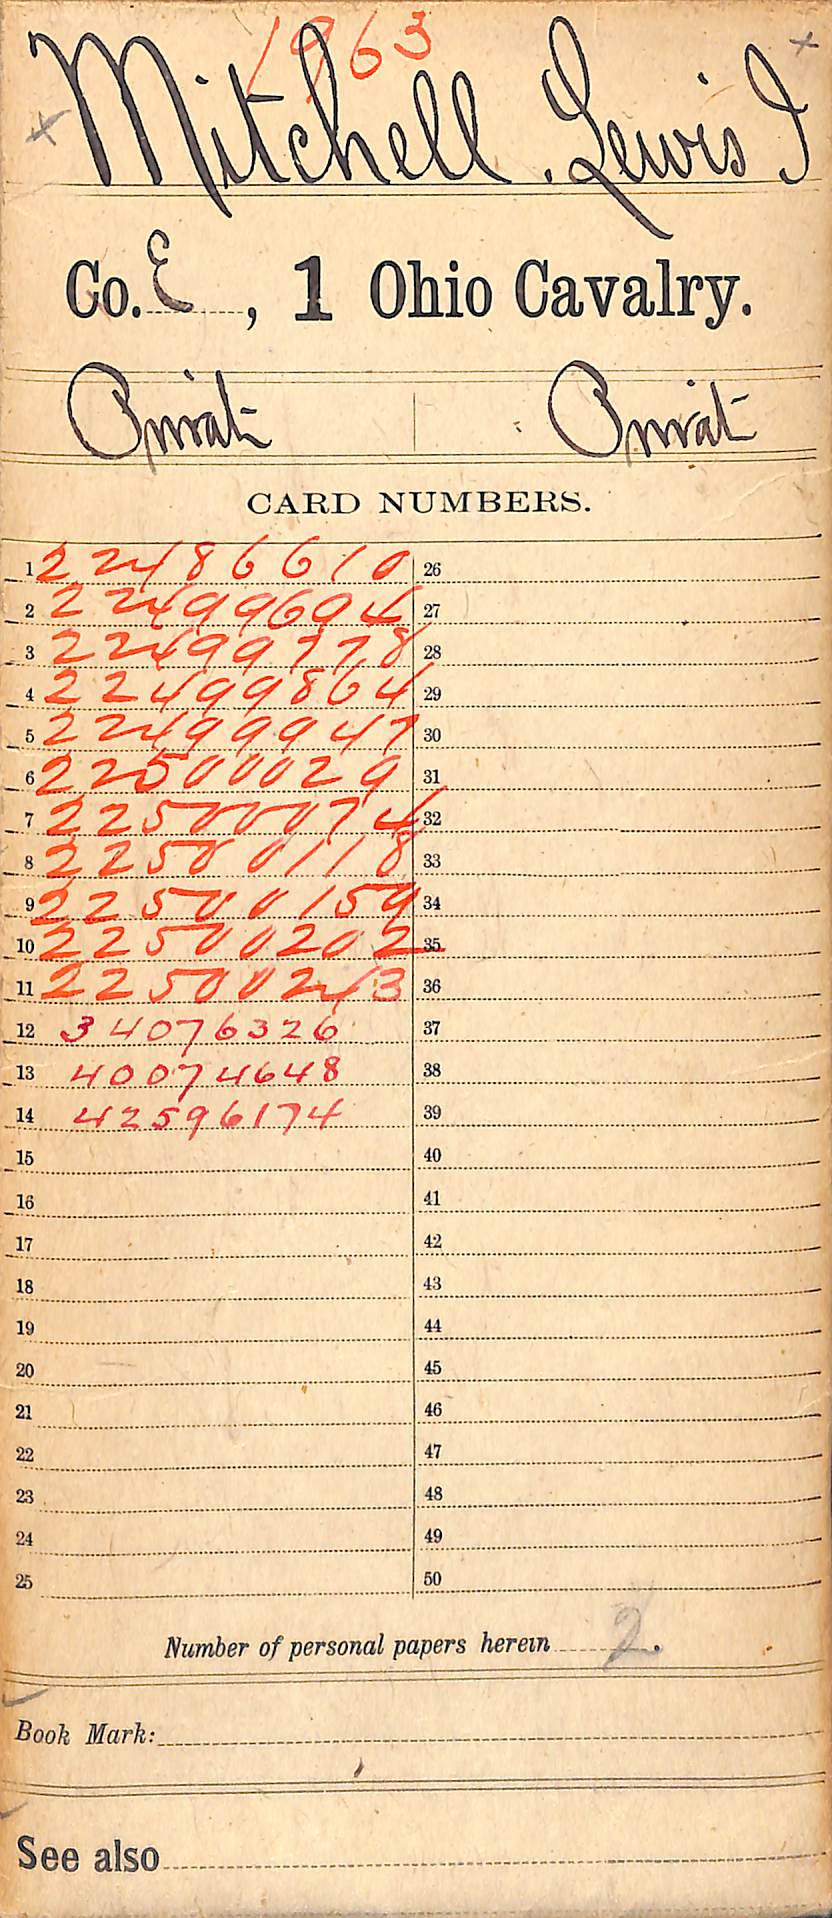 1963
Mitchell, Lewis I
Co. E, 1 Ohio Cavalry.
Privat Privat
CARD NUMBERS.
1 22486610 26
2 22499694 27
3 22499778 28
4 22499864 29
5 22499947 30
6 22500029 31
7 22500074 32
8 22500118 33
9 22500159 34
10 22500202 35
11 22500243 36
12 34076326 37
13 40074648 38
14 42596174 39
15 40
16 41
17 42
18 43
19 44
20 45
21 46
22 47
23 48
24 49
25 50
Number of personal papers herein 2.
Book Mark:
See also